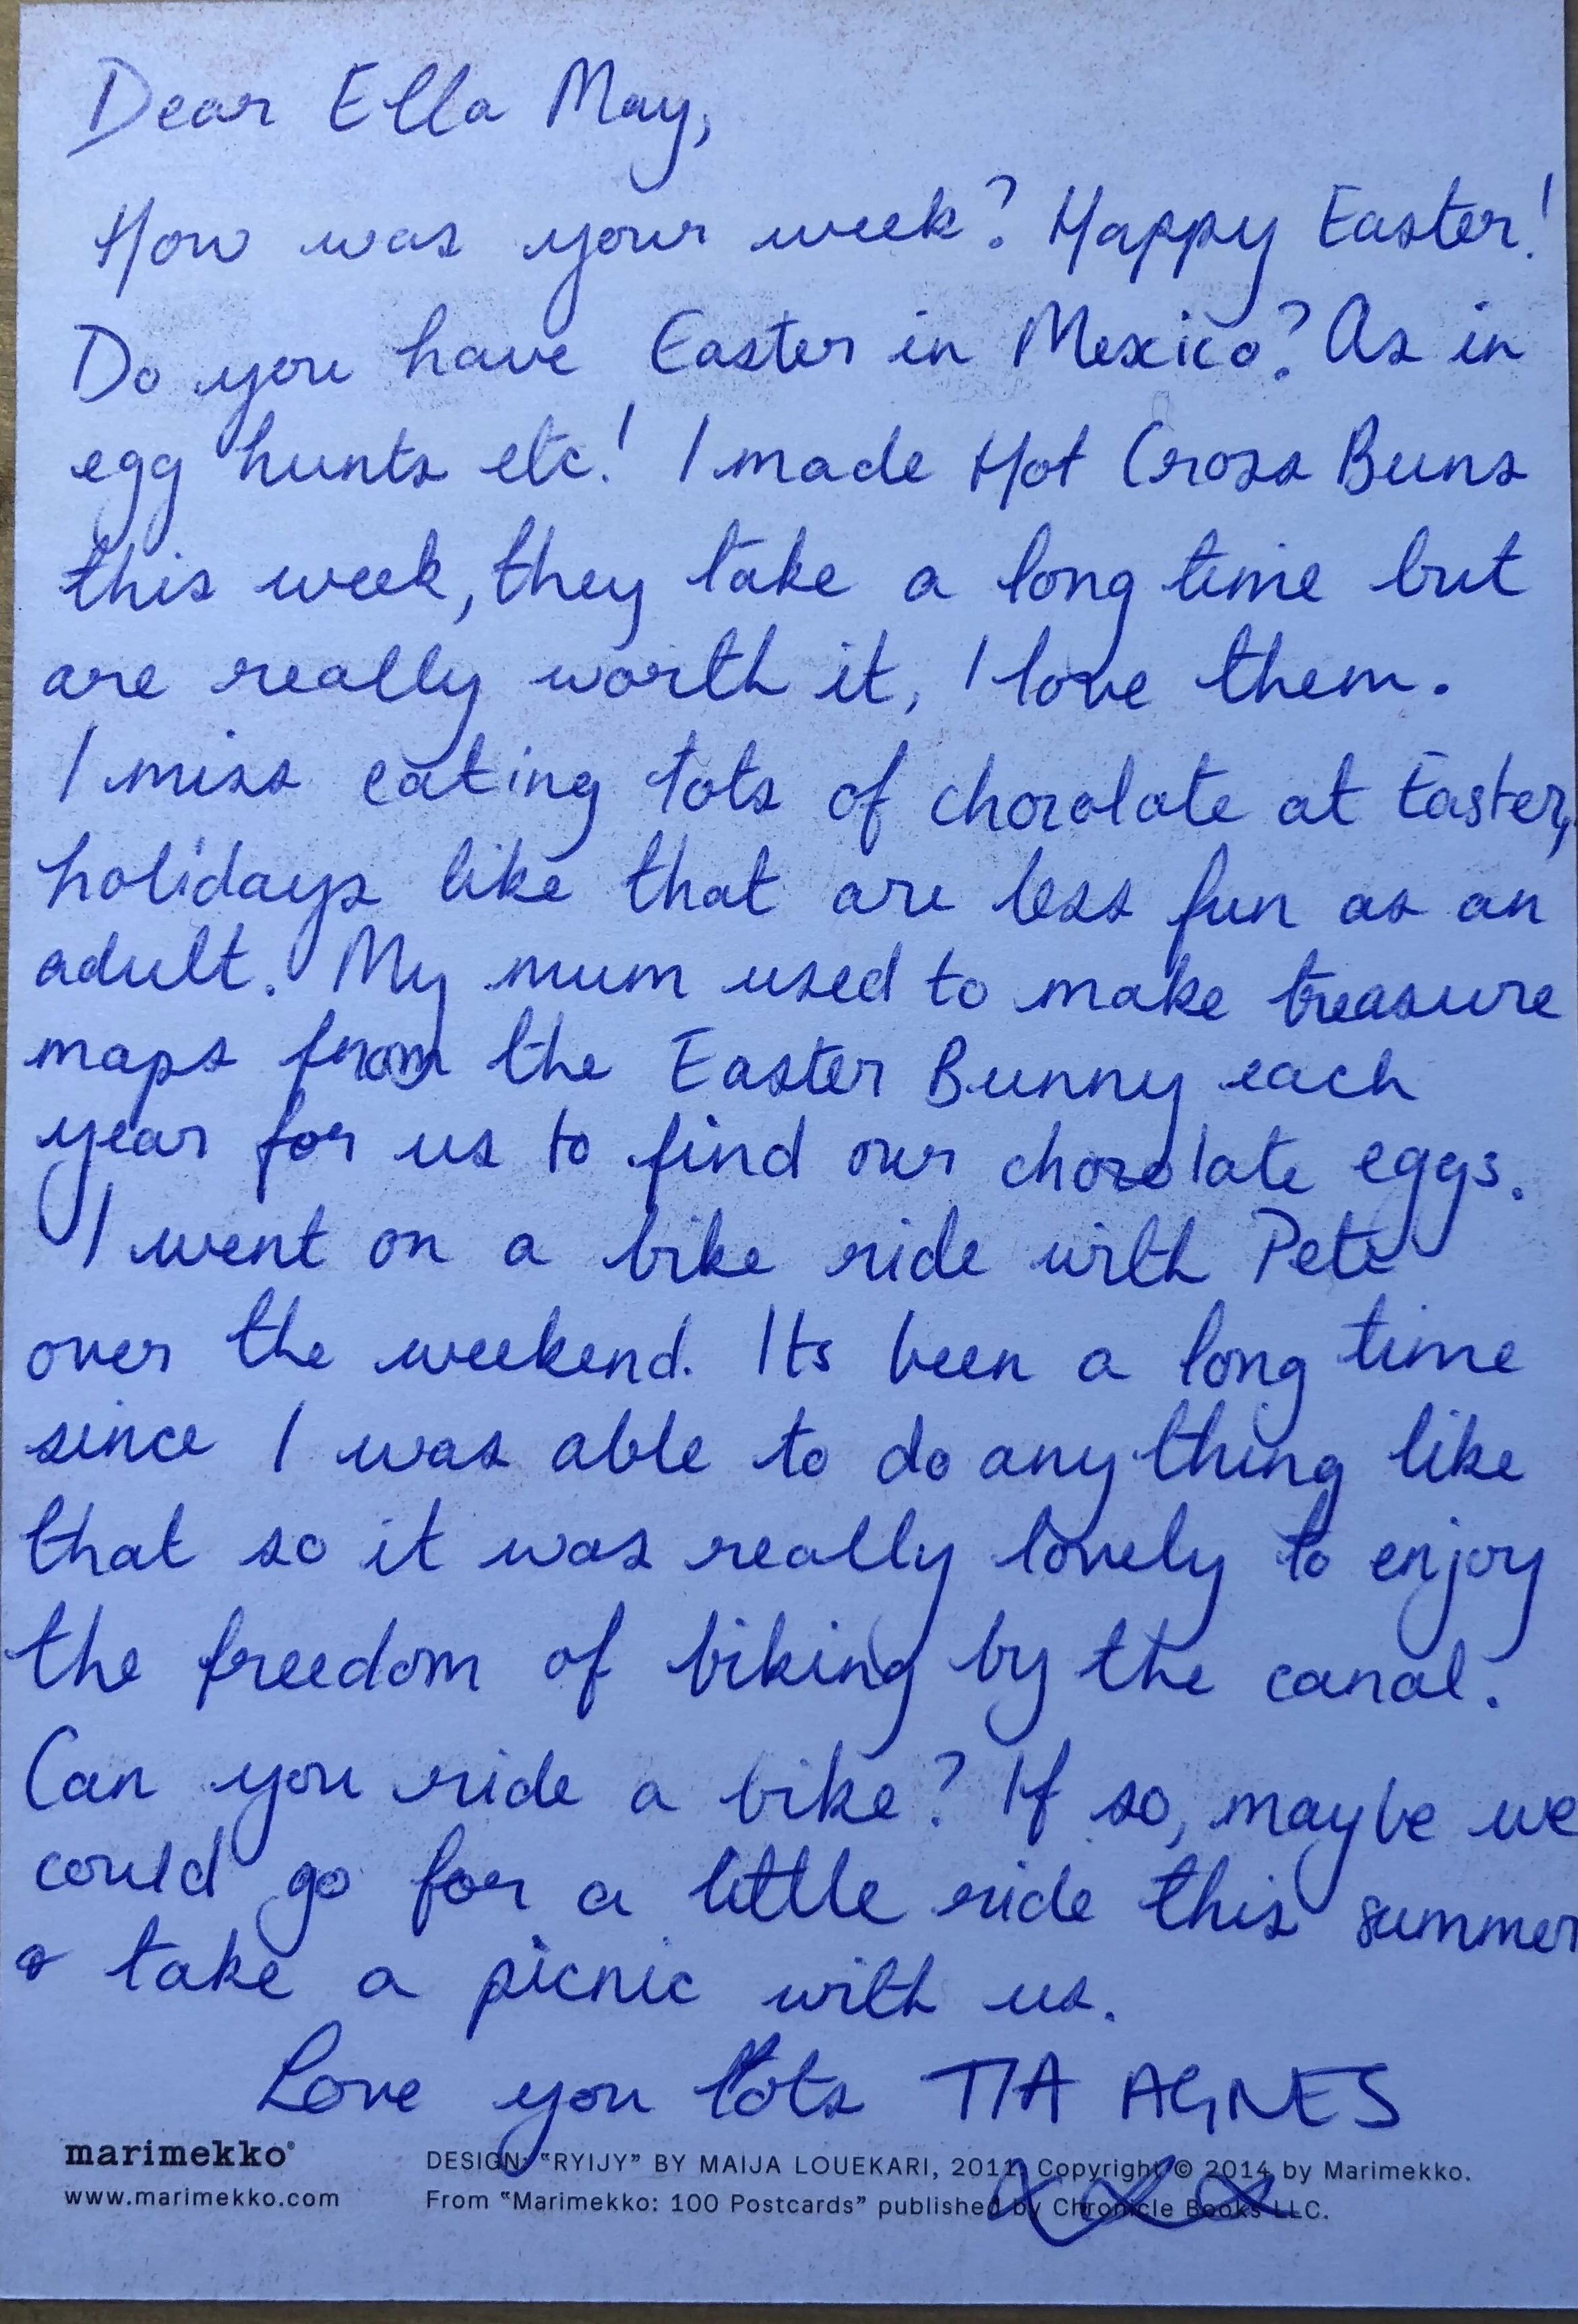 Dear Ella May,
How was your week? Happy Easter!
Do you have Easter in Mexico? As in
egg hunts etc! I made Hot Cross Buns
this week, they take a long time but
are really worth it, I love them.
I miss eating lots of chocolate at Easter,
holidays like that are less fun as an
adult. My mum used to make treasure
maps from the Easter Bunny each
year for us to find our chocolate eggs.
I went on a bike ride with Pete
over the weekend. Its been a long time
since I was able to do anything like
that so it was really lovely to enjoy
the freedom of biking by the canal.
Can you ride a bike? If so, maybe we
could go for a little ride this summer
& take a picnic with us.
Love you lots TIA AGNES
xxx
marimekko®
www.marimekko.com
DESIGN: "RYIJY" BY MAIJA LOUEKARI, 2011. Copyright © 2014 by Marimekko.
From "Marimekko: 100 Postcards" published by Chronicle Books LLC.